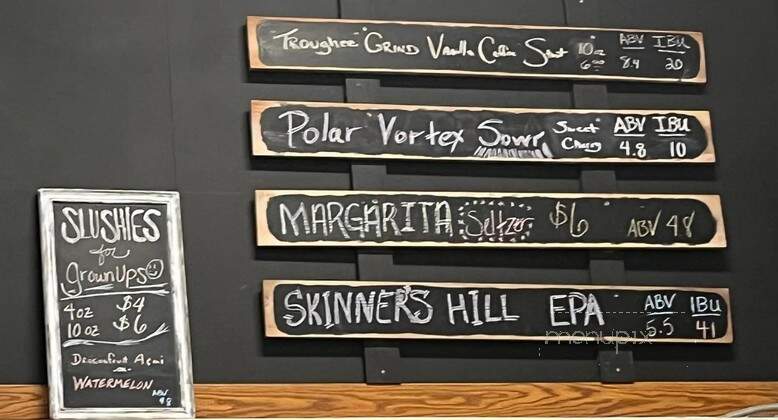 "Troughee" Grind Vanilla Coffee Stout 10oz 6.00 ABV 8.4 IBU 20
Polar Vortex Sour Sweet Cherry ABV 4.8 IBU 10
MARGARITA Seltzer $6 ABV 4.8
SKINNER'S HILL EPA ABV 5.5 IBU 41
SLUSHIES
for
GrownUps
4oz $4
10oz $6
Dragonfruit Acai
WATERMELON ABV 4.8
menupix